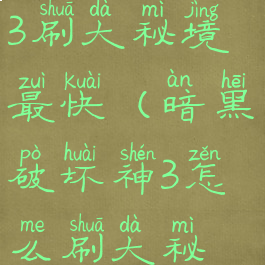 shuā dà mì jìng
3刷大秘境
zuì kuài àn hēi
最快(暗黑
pò huài shén zěn
破坏神3怎
me shuā dà mì
么刷大秘